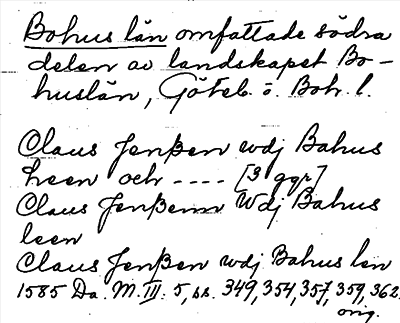 Bohus län omfattade södra
delen av landskapet Bo-
huslän, Göteb. o. Boh. l.
Claus Jenßen wdj Bahus
leen och ---- [3 ggr]
Claus Jenßenn Wdj Bahus
leen
Claus Jenßen wdj Bahus len
1585 Da. M. III: 5, ss. 349, 354, 357, 359, 362
orig.